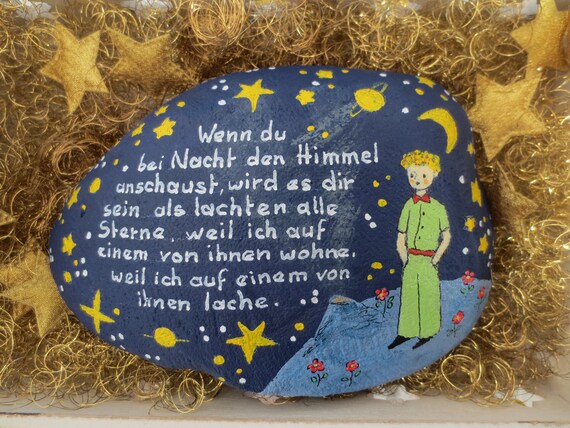 Wenn du
bei Nacht den Himmel
anschaust, wird es dir
sein als lachten alle
Sterne, weil ich auf
einem von ihnen wohne.
weil ich auf einem von
ihnen lache.